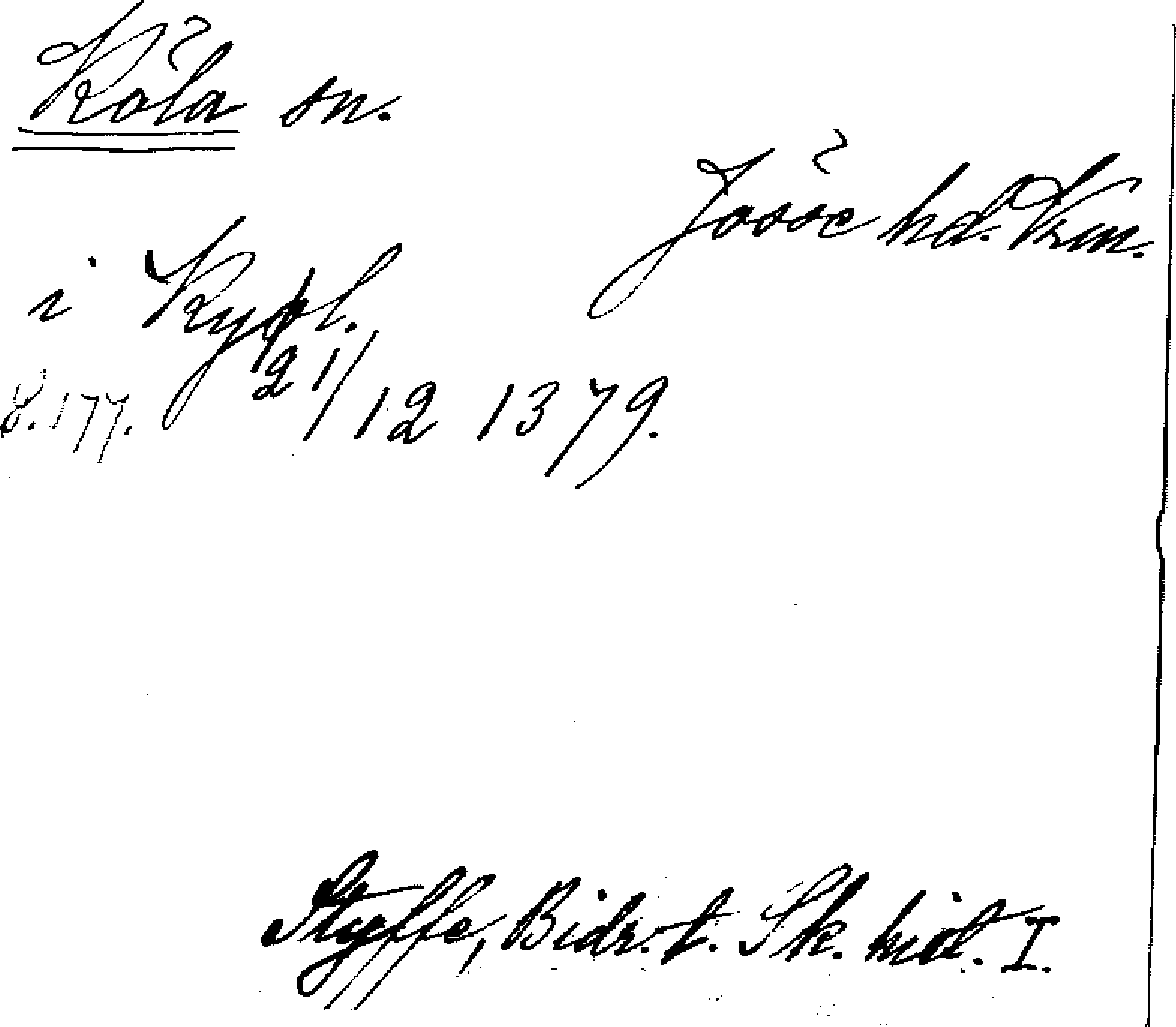 Köla sn.
Jösse hd. Vrm.
i Kypl.
21/12 1379.
s. 177.
Styffe, Bidr. t. Sk. hist. I.